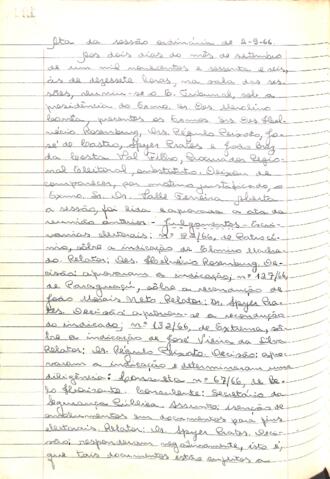 Ata da sessão ordinária de 2-9-66.
Aos dois dias do mês de setembro
de um mil novecentos e sessenta e seis,
às dezessete horas, na sala das ses-
sões, reuniu-se o E. Tribunal, sob a
presidência do Exmo. Sr. Des. Merolino
Corrêa, presentes os Exmos. Srs. Des. Hel-
vécio Rosenburg, Drs. Régulo Peixoto, Jo-
sé de Castro, Speyer Prates e João Braz
da Costa Val Filho, Procurador Regio-
nal Eleitoral, substituto. Deixou de
comparecer, por motivo justificado, o
Exmo. Sr. Dr. Ferreira. Aberta
a sessão, foi lida e aprovada a ata da
reunião anterior. Julgamentos - Escri-
vanias eleitorais: nº /66, de Patrocí-
nio, sôbre a indicação de
do. Relator: Des. Helvécio Rosenburg. De-
cisão: aprovaram a indicação; nº 127/66,
de Paraguaçu, sôbre a recondução de
João Morais Neto. Relator: Dr. Speyer Pra-
tes. Decisão: aprovou-se a recondução
do indicado; nº 132/66, de Extrema, sô-
bre a indicação de José Vieira da Silva.
Relator: Dr. Régulo Peixoto. Decisão: apro-
varam a indicação e determinaram uma
diligência; Consulta nº 67/66, de Be-
lo Horizonte. Consulente: Secretário da
Segurança Pública. Assunto: isenção de
emolumentos em documentos para fins
eleitorais. Relator: Dr. Speyer Prates. Deci-
são: responderam negativamente, isto é,
que tais documentos estão sujeitos a